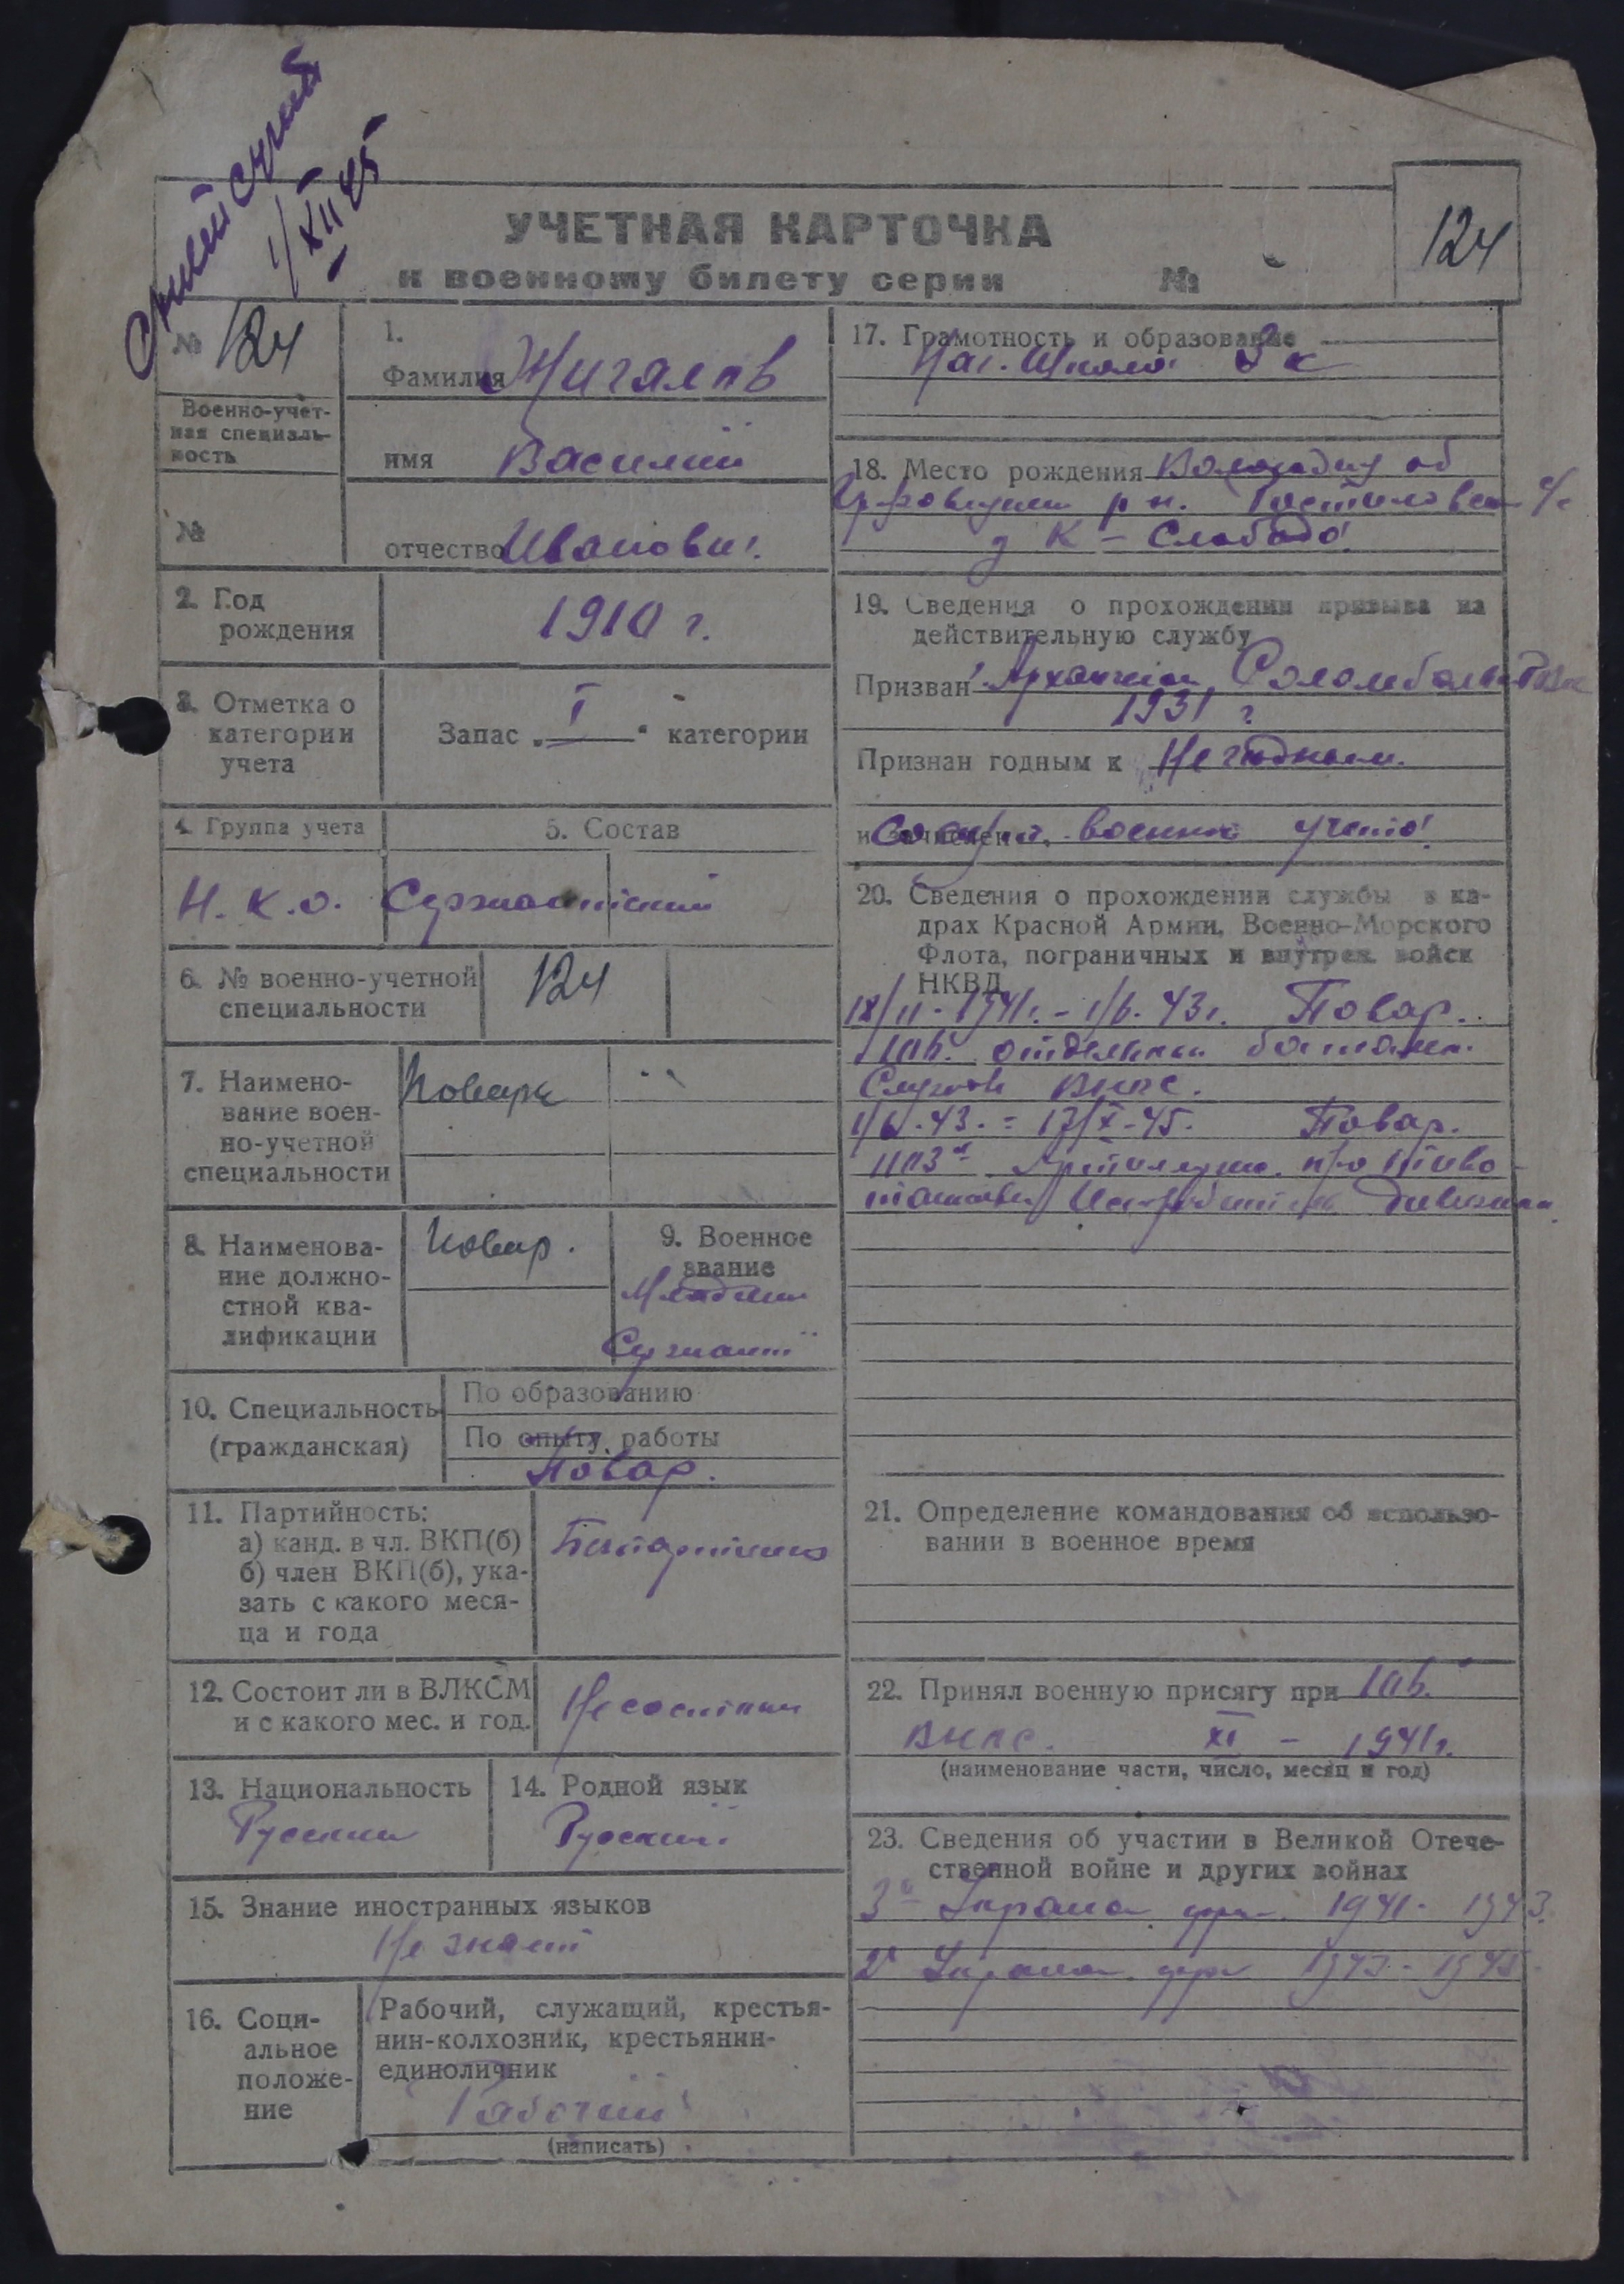 1/XII 45
УЧЕТНАЯ КАРТОЧКА
к военному билету серии №
124
№ 124
Военно-учет-
ная специаль-
ность
№
1.
Фамилия Жигалов
имя Василий
отчество Иванович
2. Год
рождения
1910 г.
3. Отметка о
категории
учета
Запас „ I " категории
4. Группа учета
5. Состав
Н.К.О. Сержантский
6. № военно-учетной
специальности
124
7. Наимено-
вание воен-
но-учетной
специальности
Повара
8. Наименова-
ние должно-
стной ква-
лификации
Повар.
9. Военное
звание
Младший
Сержант
10. Специальность
(гражданская)
По образованию
По опыту работы
Повар.
11. Партийность:
а) канд. в чл. ВКП(б)
б) член ВКП(б), ука-
зать с какого меся-
ца и года
12. Состоит ли в ВЛКСМ
и с какого мес. и год.
Не состоит
13. Национальность
Русский
14. Родной язык
Русский
15. Знание иностранных языков
Не знает
16. Соци-
альное
положе-
ние
Рабочий, служащий, крестья-
нин-колхозник, крестьянин-
единоличник
Рабочий
(написать)
17. Грамотность и образование
Нач. Школа 3 к
18. Место рождения
д К - Слобода
19. Сведения о прохождении призыва на
действительную службу
Призван
1931 г.
Признан годным к
и зачислен
20. Сведения о прохождении службы в ка-
драх Красной Армии, Военно-Морского
Флота, пограничных и внутрен. войск
НКВД
18/11-1941г. - 1/6. 43г. Повар.
отдельный батальон
Службы ВНОС.
1/6.-43. = 17/X-45. Повар.
дивизион
21. Определение командования об использо-
вании в военное время
22. Принял военную присягу при
ВНОС. XI - 1941г.
(наименование части, число, месяц и год)
23. Сведения об участии в Великой Отече-
ственной войне и других войнах
3й Украин. фрон. 1941 - 1943.
2й Украин. фрон 1943 - 1945